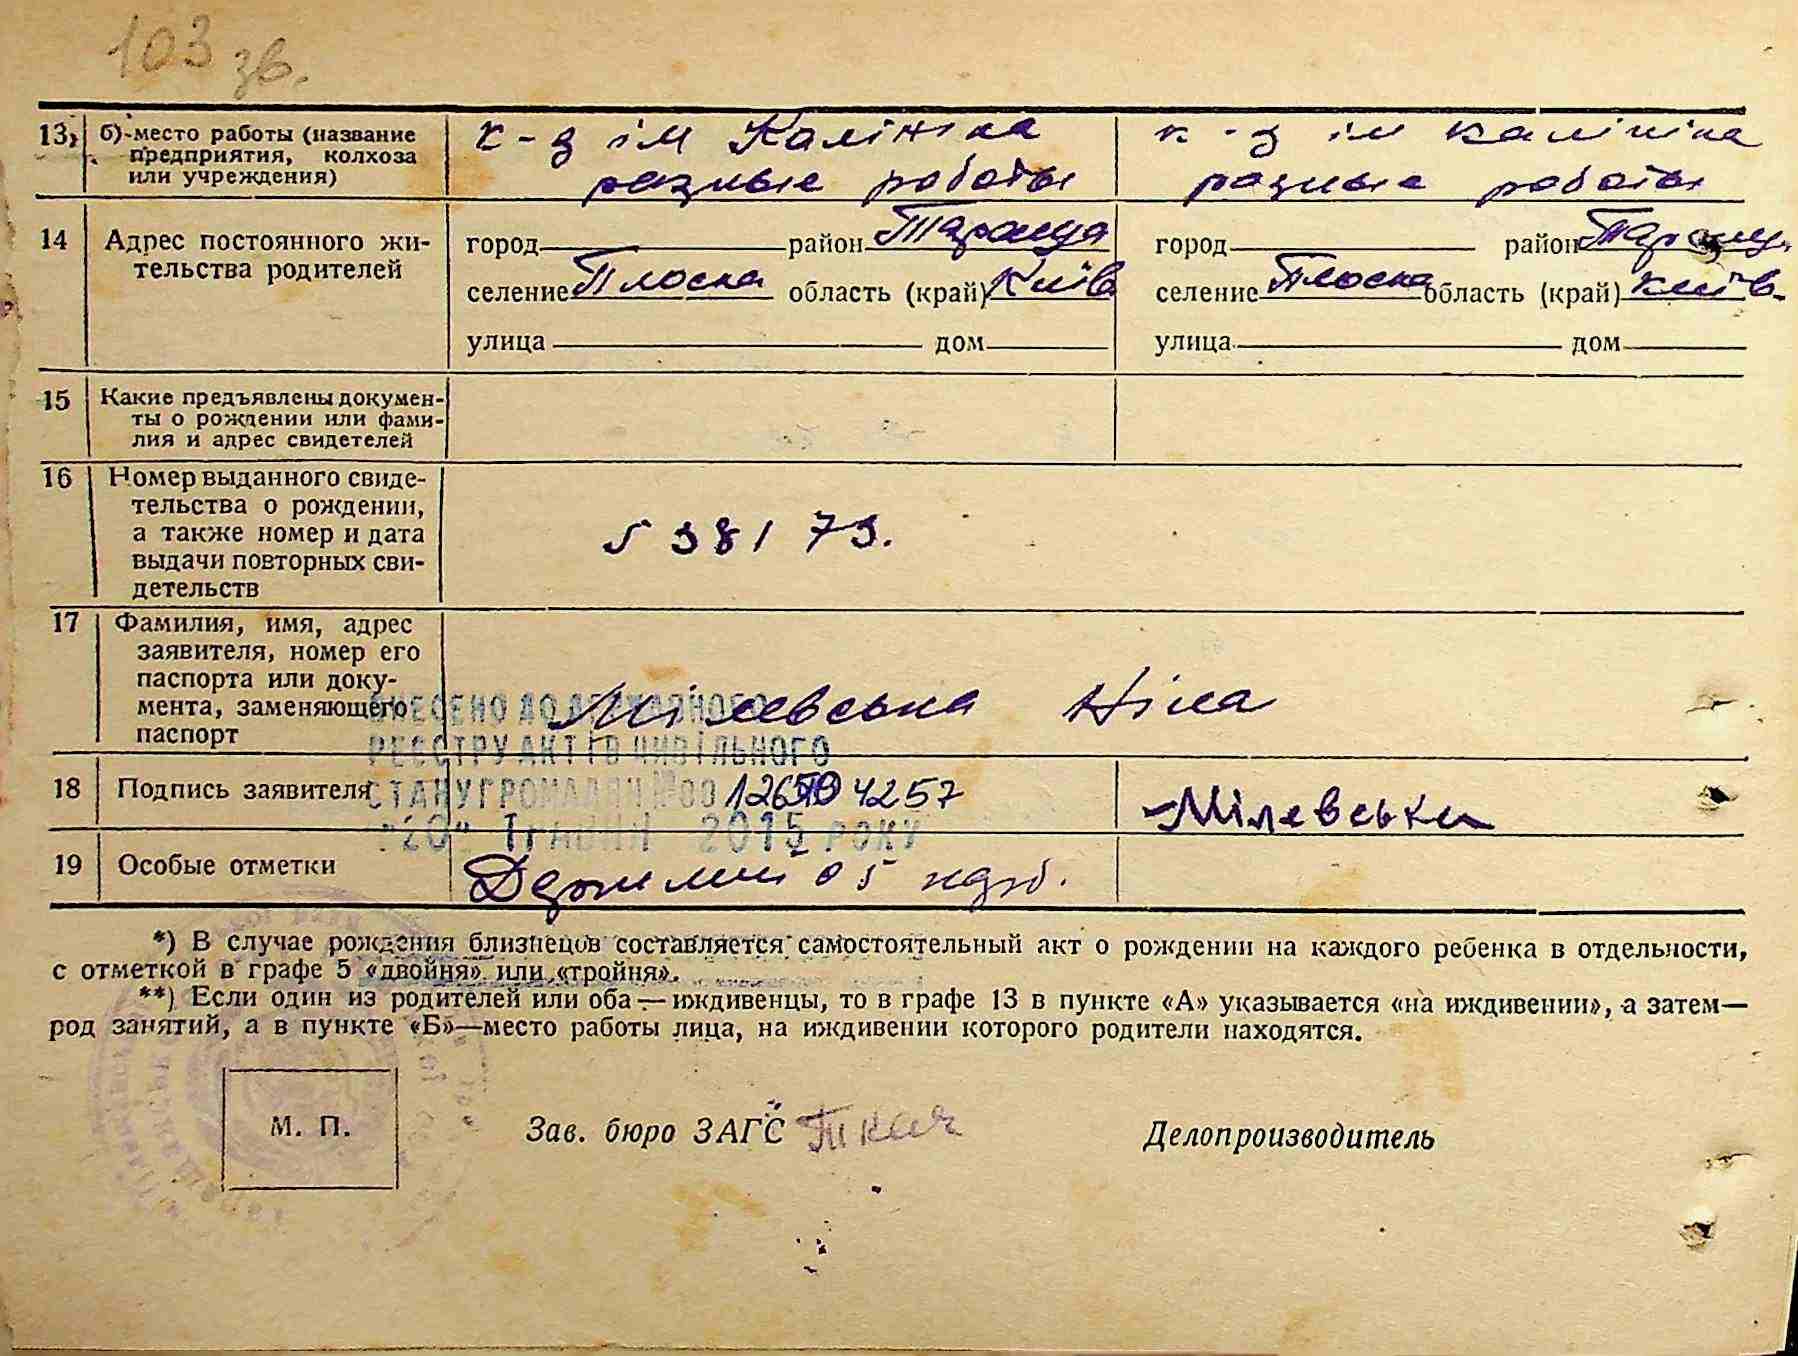 103 зв.
13, б) место работы (название к-з ім Калініна к-з ім Калініна
предприятия, колхоза
или учреждения) разные работы разные работы
14 Адрес постоянного жи- город район Тараща город район Таращ.
тельства родителей селение Плоска область (край) Київ селение Плоска область (край) Київ.
улица дом улица дом
15 Какие предъявлены докумен-
ты о рождении или фами-
лия и адрес свидетелей
16 Номер выданного свиде-
тельства о рождении,
а также номер и дата 538173.
выдачи повторных сви-
детельств
17 Фамилия, имя, адрес
заявителя, номер его
паспорта или доку-
мента, заменяющего Мілевська Ніна
паспорт
ВНЕСЕНО ДО ДЕРЖАВНОГО
РЕЄСТРУ АКТІВ ЦИВІЛЬНОГО
СТАНУ ГРОМАДЯН №00 1265 4257
"20" Травня 2015 РОКУ
18 Подпись заявителя Мілевська
19 Особые отметки 05
*) В случае рождения близнецов составляется самостоятельный акт о рождении на каждого ребенка в отдельности,
с отметкой в графе 5 «двойня» или «тройня».
**) Если один из родителей или оба — иждивенцы, то в графе 13 в пункте «А» указывается «на иждивении», а затем—
род занятий, а в пункте «Б»—место работы лица, на иждивении которого родители находятся.
М. П. Зав. бюро ЗАГС Ткач Делопроизводитель